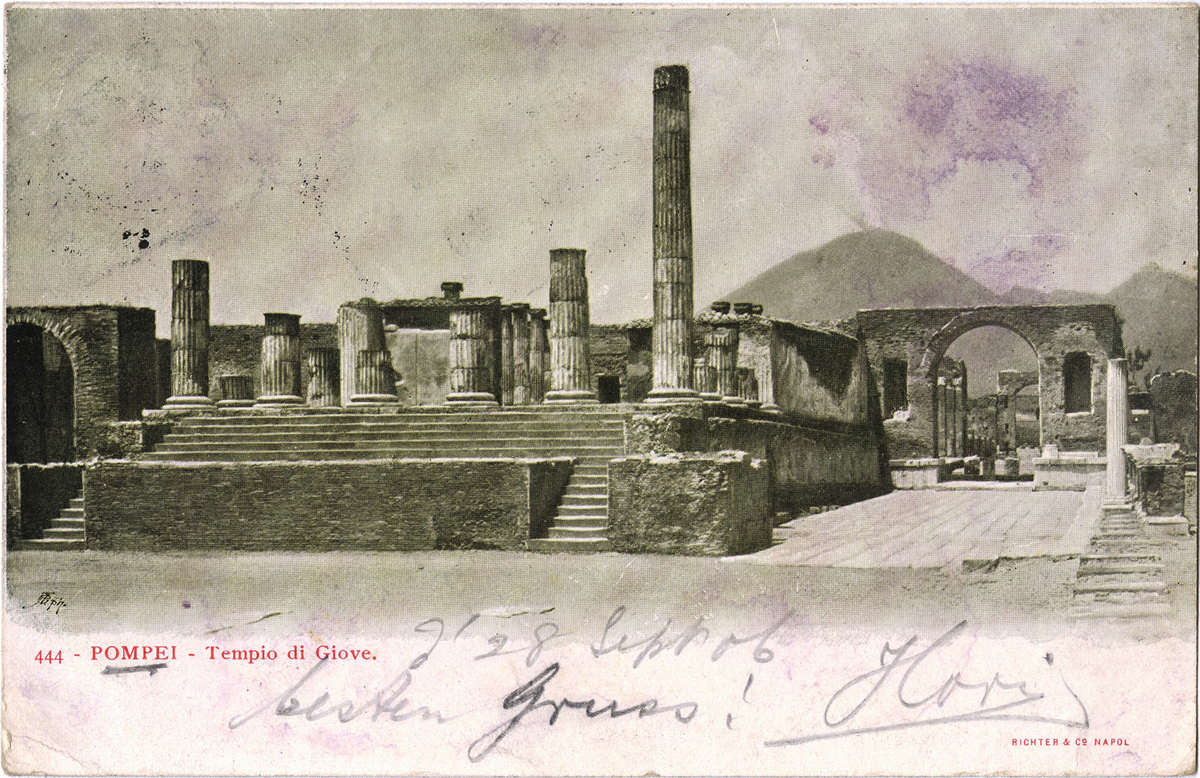 444 - POMPEI - Tempio di Giove.
28 Sept 06
besten Gruss!
RICHTER & Cº NAPOL